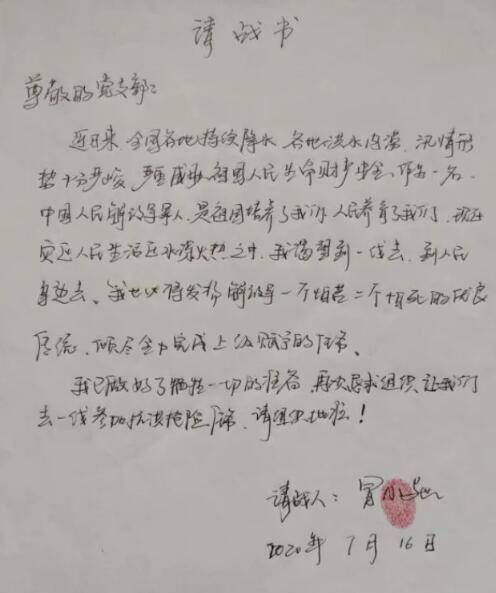 请战书
尊敬的党支部：
近日来，全国各地持续降水，各地洪水内涝，汛情形
势十分严峻，严重威胁祖国人民生命财产安全，作为一名
中国人民解放军军人，是祖国培养了我们，人民养育了我们，现在
灾区人民生活在水深火热之中，我渴望到一线去，到人民
身边去。我也必将发扬解放军一不怕苦二不怕死的优良
传统，倾尽全力完成上级赋予的任务。
我已做好了牺牲一切的准备，再次恳求组织让我们
去一线参加抗洪抢险任务，请组织批准！
请战人：
2020年 7月 16日